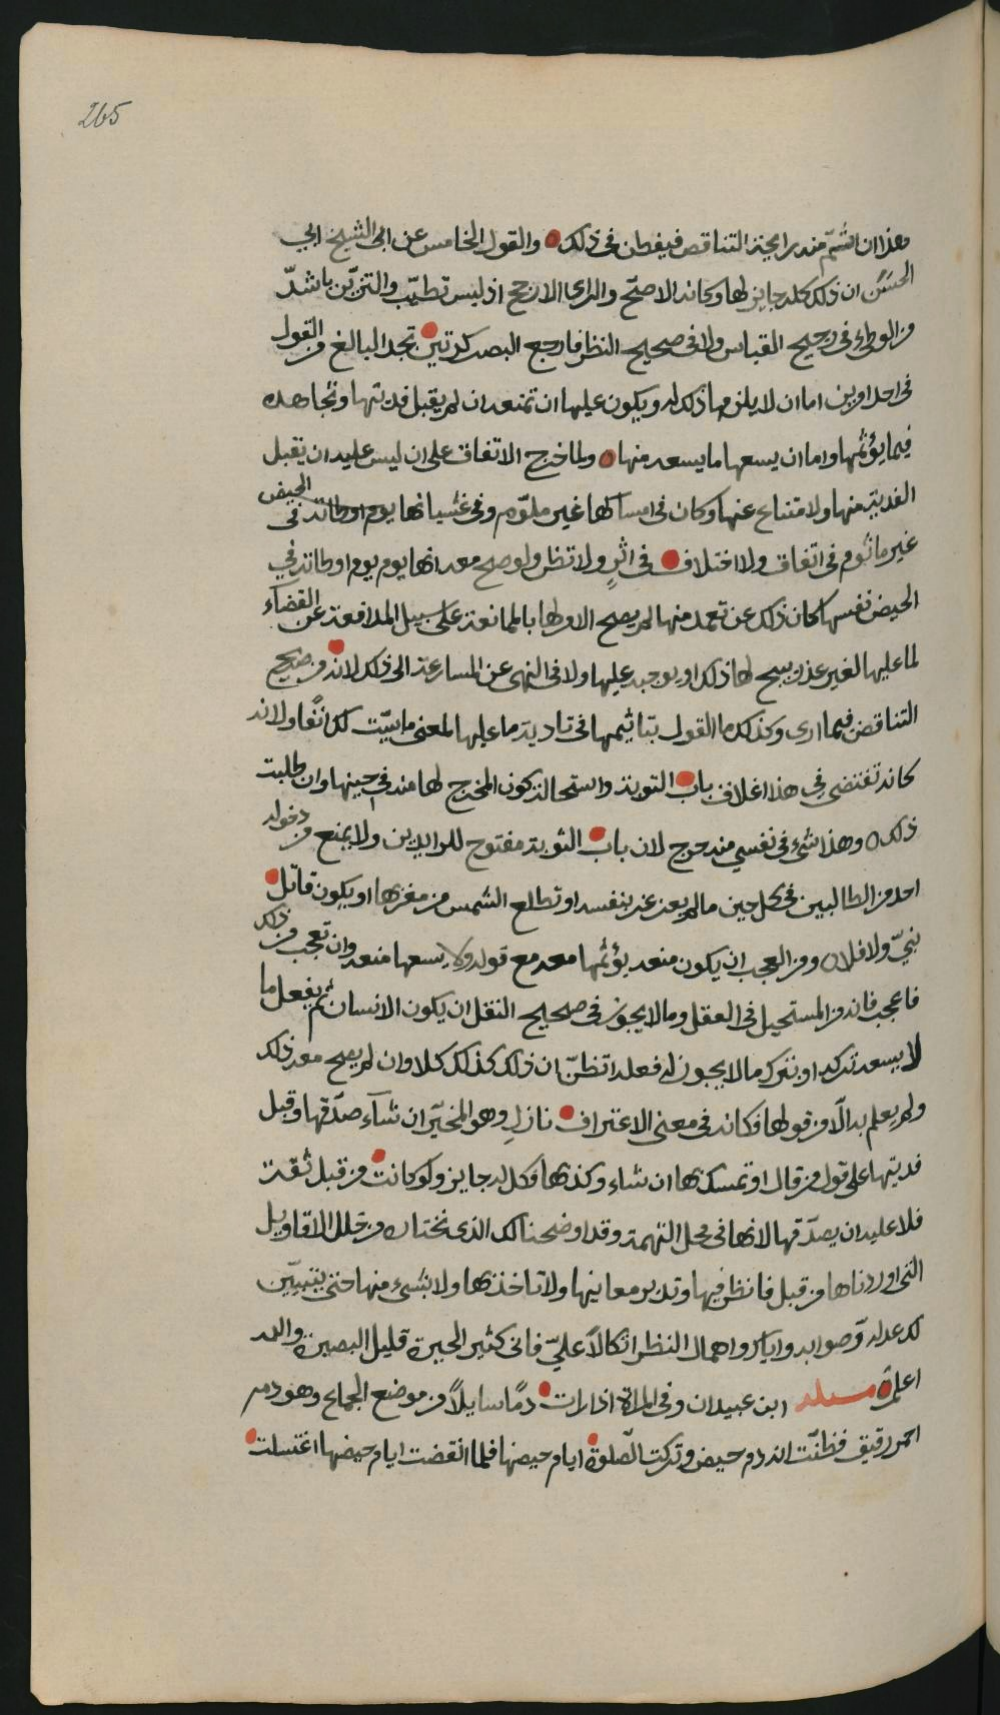 265
وهذا ان اشتمّ منه رايحة التناقص فيفطن فى ذلك ه والقول الخامس عن ابى الشيخ ابي
الحسن ان ذلك كله جايز لها وكانه الاصحّ والراى الارجح اذ ليس تطيّب والتزيّن باشدّ
من الوطئ فى رجيح القياس ولا فى صحيح النظر فارجع البصر كرتين تجد البالغ من القول
فى احد اوين اما ان لا يلزمها ذلك له ويكون عليها ان تمنعه ان لم يقبل فديتها وتجاهده
فيما يؤثمها واما ان يسعها ما يسعه منها ه ولما خرج الاتفاق على ان ليس عليه ان يقبل
الفدية منها ولا متناع عنها وكان فى امساكها غير ملوّم وفى غشيانها يوم اوطاته فى الحيض
غير ماثوم فى اتفاق ولا اختلاف فى اثرٍ ولا نظر ولو صح معه انها يوم يوم اوطاته في
الحيض نفسها كان ذلك عن تعمد منها لم يصح الا ولها بالممانعة على سبيل المدافعة عن القضآء
لما عليها لغير عذر يبيح لها ذلك او يوجبه عليها ولا فى النهى عن المسارعة الى ذلك لانه من صحيح
التناقص فيما ارى وكذلك ما القول بتاثيمها فى تادية ما عليها لمعنى ما بيّت لك انفًا ولانه
كانه تقتضى فى هذا اغلاق باب التوبة واستحالة كون المخرج لها منه فى حينها وان طلبت
ذلك ه وهذا شىء فى نفسي منه حرج لان باب التوبة مفتوح للرايدين ولا يمنع من دخوله
احد من الطالبين فى كل حين ما لم يعزعز بنفسه او تطلع الشمس من مغربها او يكون قاتل
نبيّ ولا فلا ه ومن العجب ان يكون منعه يؤثمها معه مع قوله ولا يسعها منعه وان تعجب من ذلك
فاعجب فانه من المستحيل فى العقل وما لا يجوز فى صحيح النقل ان يكون الانسان لم يفعل ما
لا يسعه تركه او بترك ما لا يجوز له فعله اتظنّ ان ذلك كذلك كلا وان لم يصح معه ذلك
ولم يعلم به الّا من قولها فكانه فى معنى الاعتراف نازلٍ وهو المخيّر ان شآء صدّقها وقبل
فديتها على قول من قال او تمسك بها ان شاء وكذبها فكل له جايز ولو كانت من قبل ثقة
فلا عليه ان يصدّقها لانها فى محل التهمة وقد اوضحنا لك الذى نختاره من خلال الاقاويل
التى اوردناها من قبل فانظر فيها وتدبر معانيها ولا تاخذ بها ولا بشىء منها حتى يتبيّن
لك عدله وصوابه واياك واهمال النظر اتكالاً عليّ فانى كثير الحيرة قليل البصيرة والله
اعلم مسئله ابن عبيدان وفى المراة اذا رات دمًا سايلاً من موضع الجماع وهو دم
احمر رقيق فظنّت انه دم حيض وتركت الصّلوة ايام حيضها فلما انقضت ايام حيضها اغتسلت